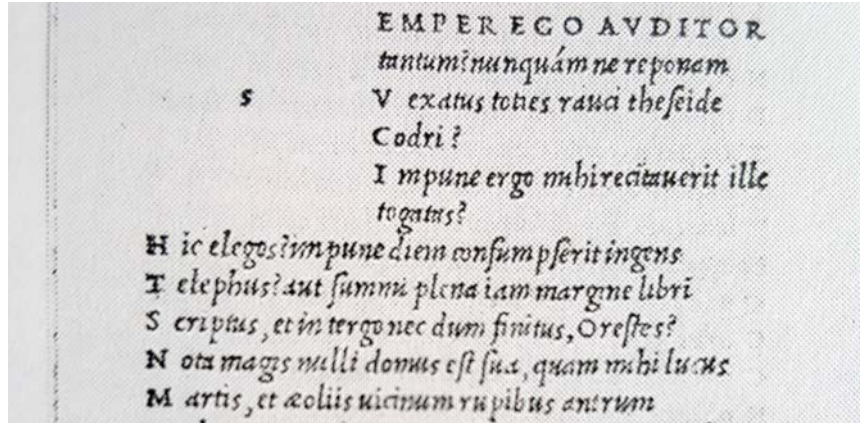 EMPER EGO AVDITOR
tantum? nunquám ne reponam
s V exatus toties rauci theseide
Codri?
I mpune ergo mihi recitauerit ille
togatus?
H ic elegos? impune diem consumpserit ingens
T elephus? aut summi plena iam margine libri
S criptus, et in tergo nec dum finitus, Orestes?
N ota magis nulli domus est sua, quam mihi lucus
M artis, et æoliis uicinum rupibus antrum